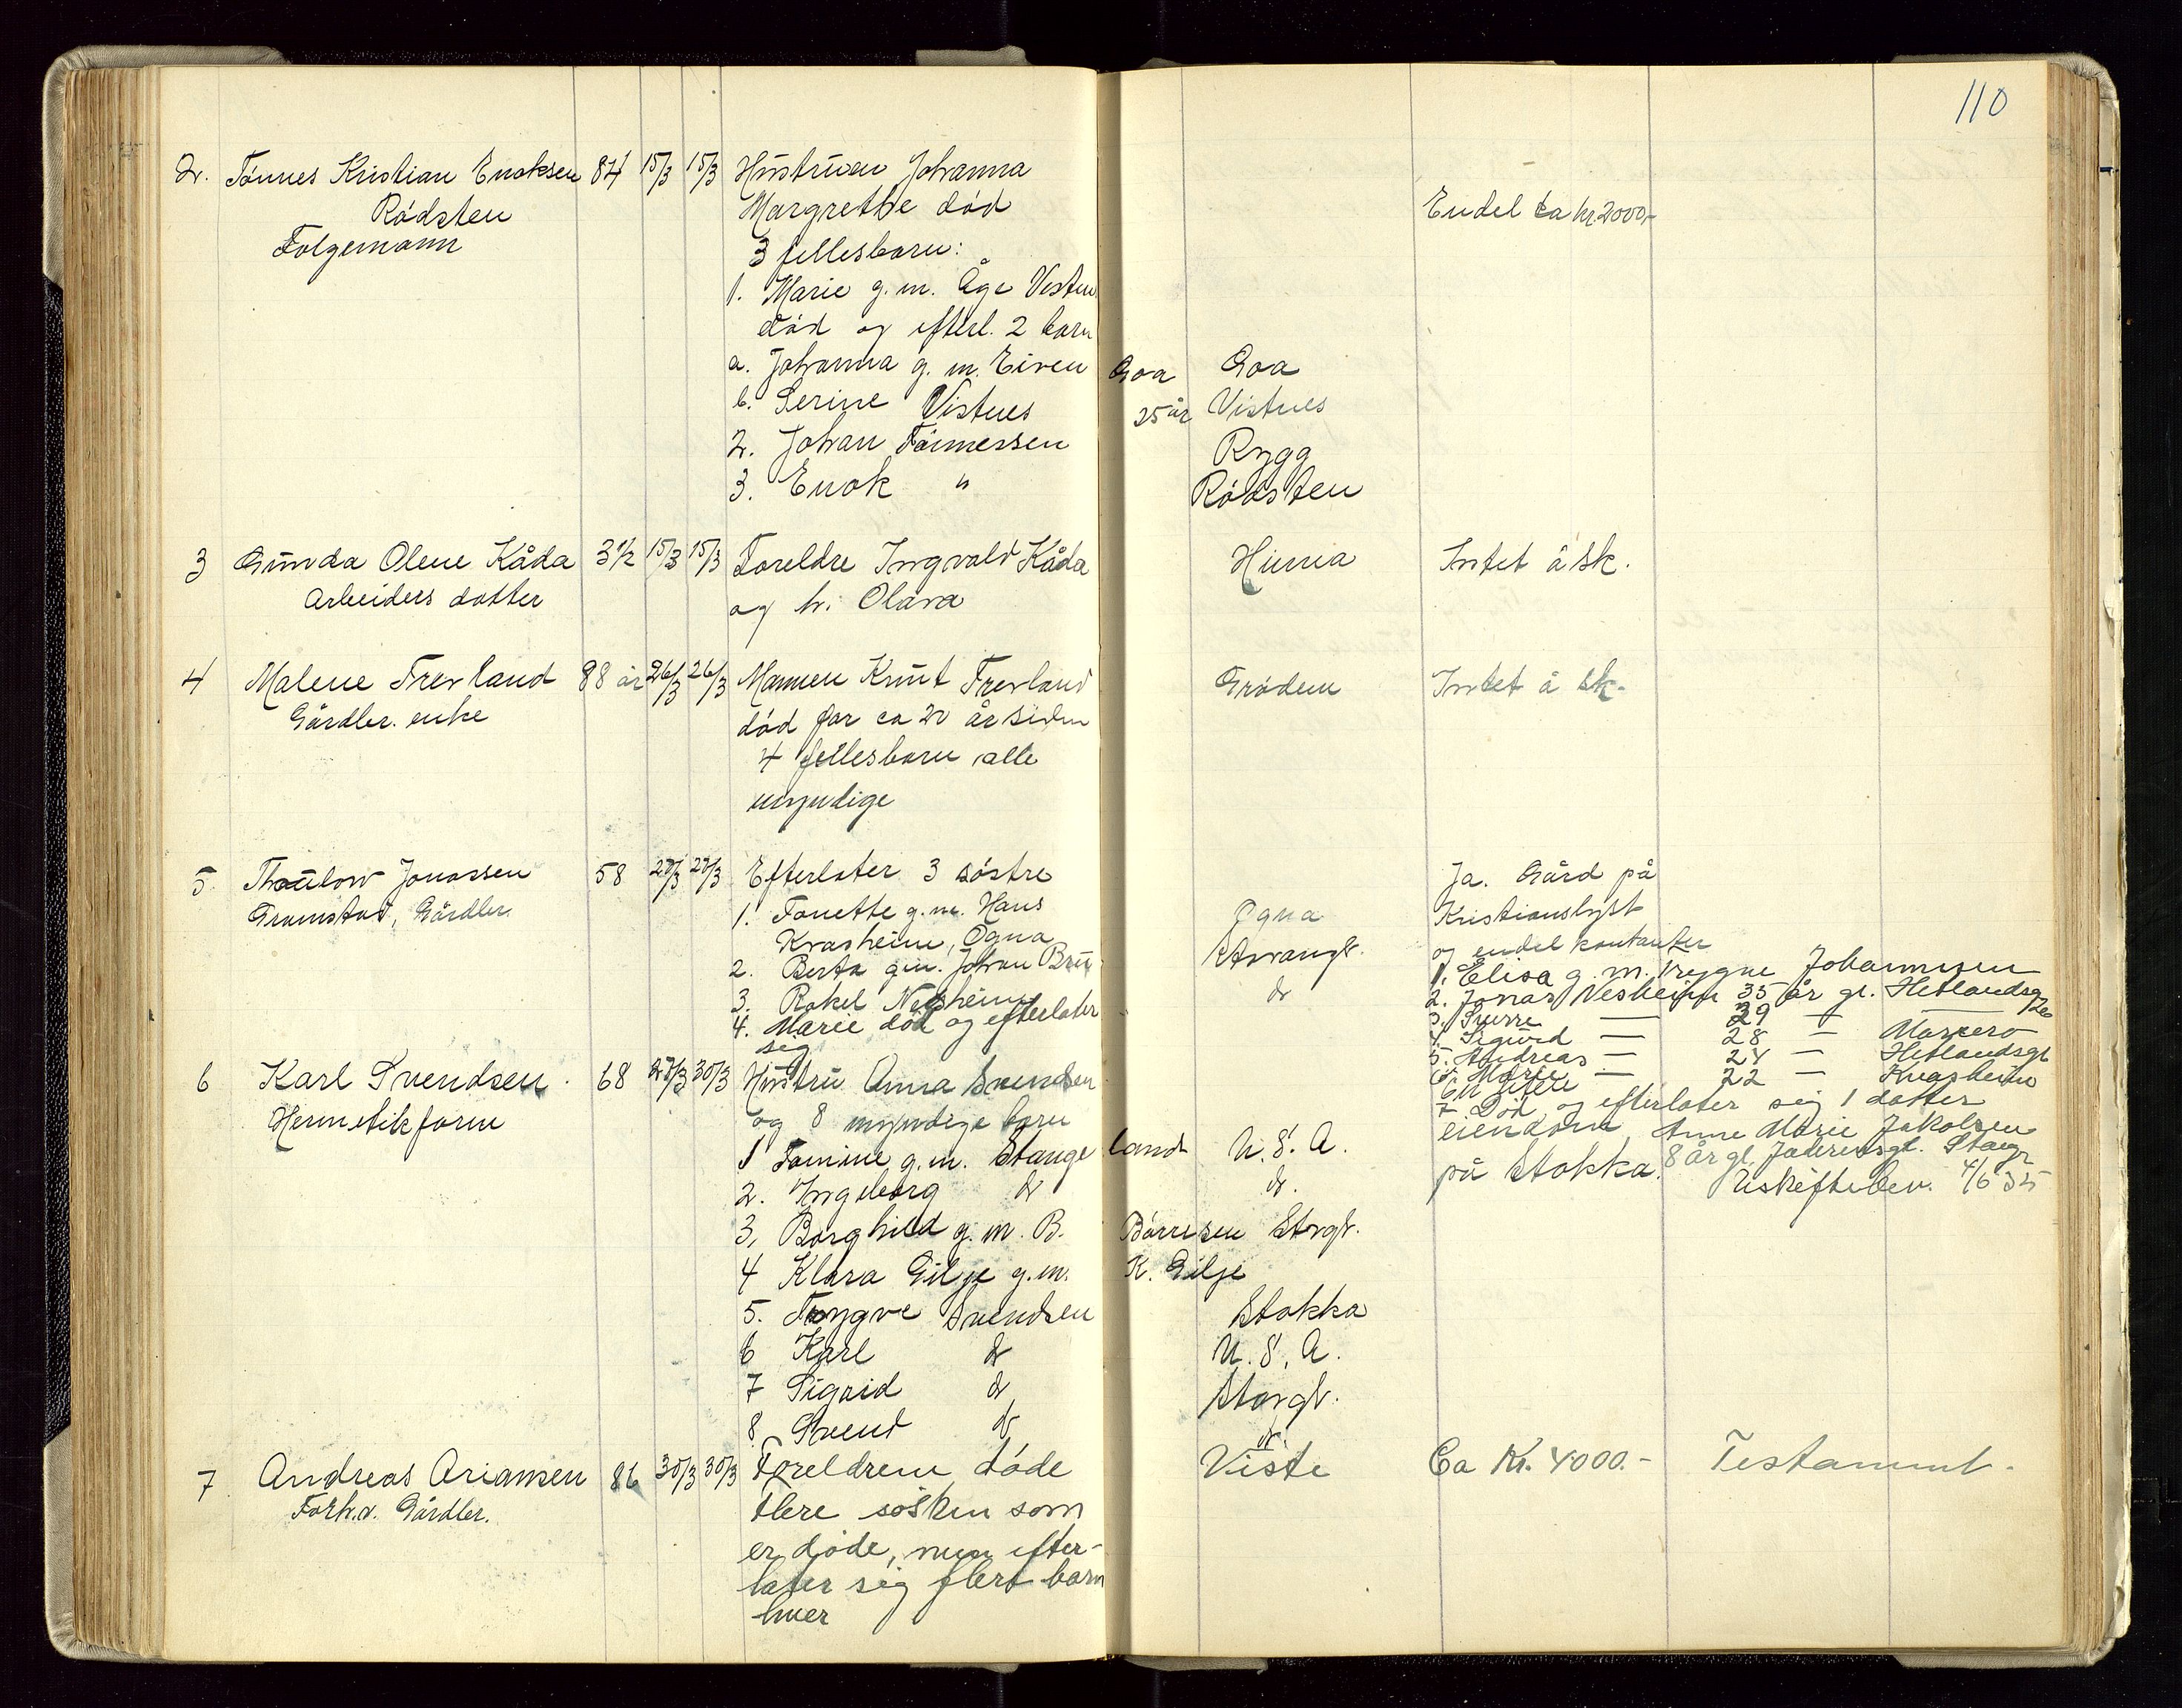 110
2. Tönnes Kristian Enoksen 84 15/3 15/3 Hustruen Johanna
Rödsten Margrethe död Endel ca kr. 2000,-
Folgemann 3 fellesbarn:
1. Marie g. m. Åge Vistnes
död og efterl. 2 barn
a. Johanna g. m. Eiven Goa Goa
b. Serine Vistnes 25 år Vistnes
2. Johan Tönnessen Rygg
3. Enok " Rödsten
3 Gunda Olene Kåda 3 1/2 15/3 15/3 Foreldre Ingvald Kåda Hinna Intet å sk.
Arbeiders datter og h. Olava
4 Malene Trevland 88 år 26/3 26/3 Mannen Knut Trevland Grödem Intet å sk.
Gårdbr. enke död for ca 20 år siden
4 fellesbarn alle
myndige
5. Thaulow Jonassen 58 Efterlater 3 söstre Ja. Gård på
Gramstad, Gårdbr. 1. Tonette g. m. Hans Ogna Kristianslyst
Kvasheim, Ogna Stavangr. og endel kontanter
2. Berta g.m. Johan do 1. Elisa g. m. Trygve Johannesen
3. Rakel Nesheim 2. Jonas Nesheim 35 år gl. Hetlandsg
4. Marie död og efterlater 3. Sverre — 29 —
sig 4. Sigurd — 28 —
5. Andreas — 24 — Hetlandsgt
6. Marie — 22 — Kvasheim
6 Karl Svendsen. 68 27/3 30/3 Hustru Anna Svendsen En liten
Hermetikform og 8 myndige barn 7. Död og efterlater sig 1 datter
eiendom Anne Marie Jakobsen
1 Tomine g. m. Stangeland U. S. A. på Stokka. 8 år gl. Jaderensgt. Stavgr
2. Ingeborg do do. Uskiftebev. 4/6 35
3, Borghild g. m. B. Börresen Stvgr.
4 Klara Gilje g. m. K. Gilje
5. Trygve Svendsen Stokka
6 Karl do U. S. A.
7 Sigrid do Stavgr.
8. Svend do do
7. Andreas Ariansen 86 30/3 30/3 Foreldrene döde Viste Ca Kr. 4000.- Testament.
Forh.v. Gårdbr. flere sösken som
er döde, men efter-
later sig flere barn
hver